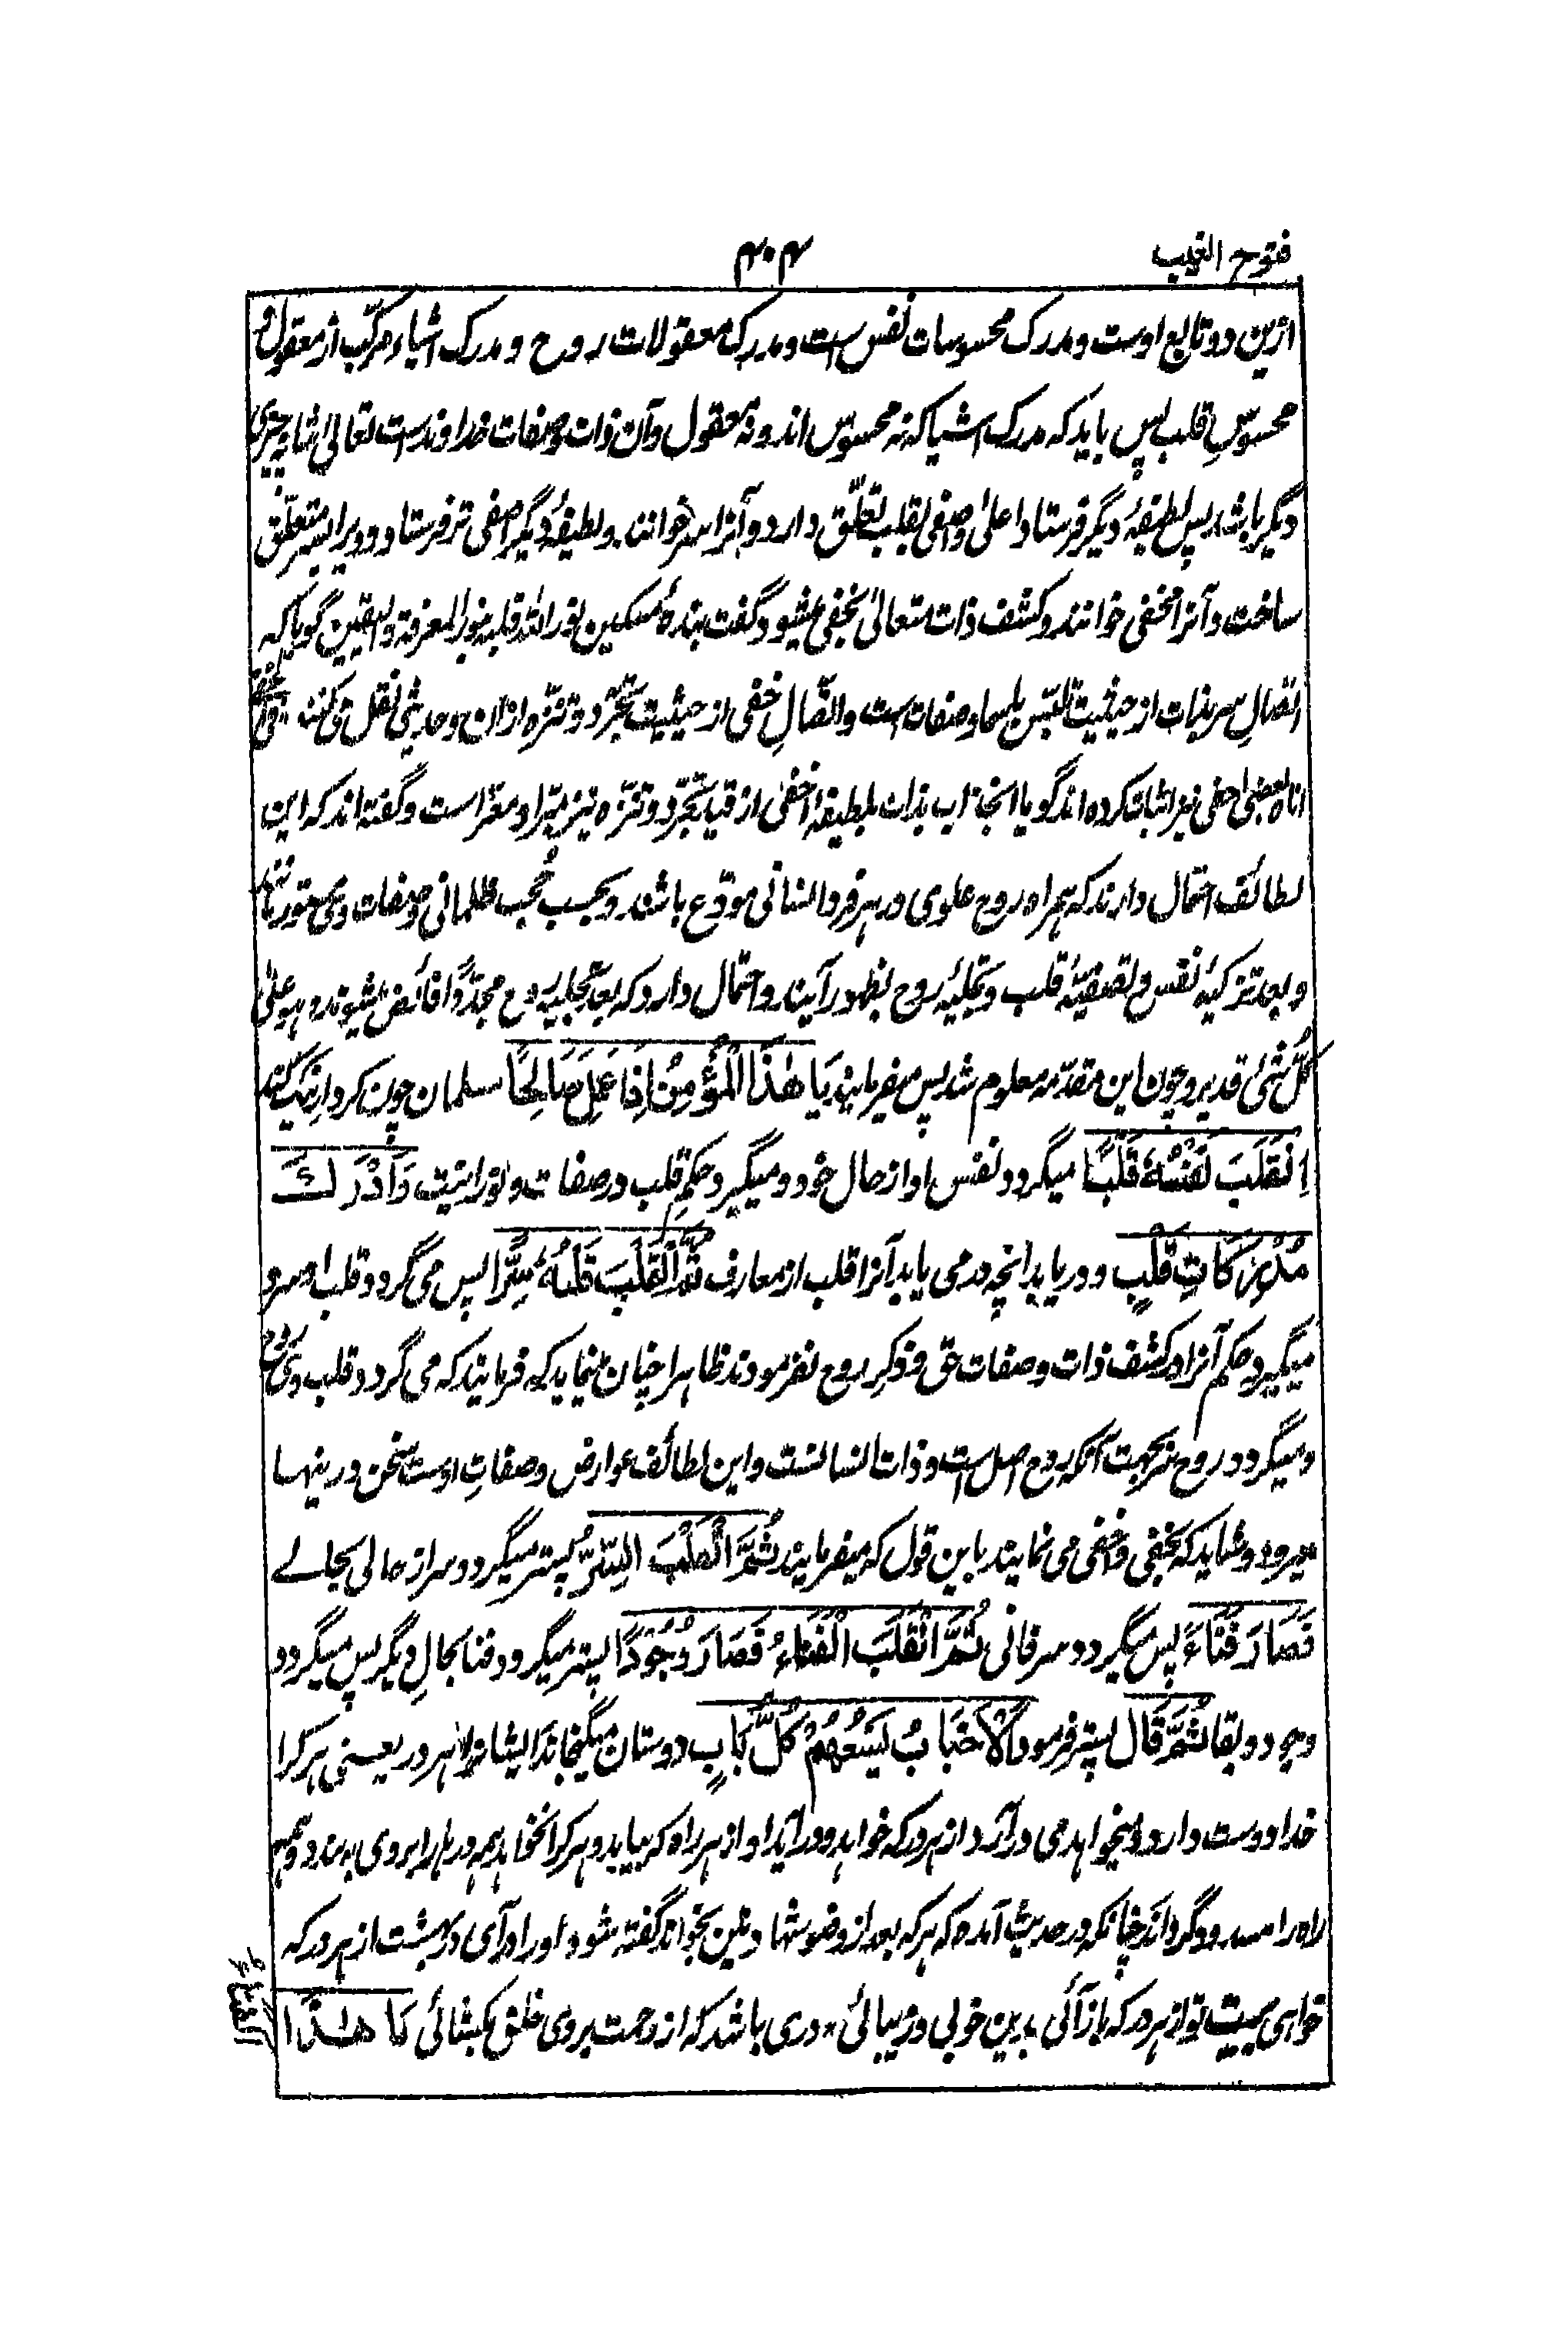 فتوح الغیب
۴۰۴
ازین دو تابع اوست و مدرک محسوسات نفس ست و مدرک معقولات روح و مدرک اشیاء مرکّب از معقول و
محسوسِ قلب پس باید که مدرک اشیا که نه محسوس اند و نه معقول و آن ذات و صفات خداوندست تعالیٰ
دیگر باشد پس لطیفهٔ دیگر فرستاد اعلیٰ و اصفی بقلب تعلّق دارد و آنرا سر خوانند و لطیفهٔ دیگر اصفی تر فرستاد و ویرا بسر متعلّق
ساخت و آنرا خفی خوانند و کشف ذات متعالیٰ بخفی میشود گفت بندهٔ مسکین نور اللّٰه قلبه بنور المعرفة والیقین گویا که
اتّصالِ سر بذات از حیثیت تلبّس باسما و صفات است و اتّصالِ خفی از حیثیت تجرّد و تنزّه ازان و حدیثی نقل می کنند
اما بعضی اخفی نیز اثبات کرده اند گویا انجذاب بذات بلطیفهٔ اخفیٰ از قید تجرّد و تنزّه نیز مبرّا و معرّا است و گفته اند که این
لطائف احتمال دارند که همراه روح علوی در هر فرد انسانی مودع باشند و بحجب ظلمانی و صفات
و بعد تزکیهٔ نفس و تصفیهٔ قلب و تجلیهٔ روح بظهور آیند و احتمال دارد که بعد تجلیه روح مجدّدًا فائض میشوند و هو علیٰ
کُلِّ شئ قدیر و چون این مقدّمه معلوم شد پس میفرمایند یَا هٰذَا الْمُؤْمِنُ اِذَا عَمِلَ صَالِحًا مسلمان چون کردار نیک کند
اِنْقَلَبَ نَفْسُهٗ قَلْبًا میگردد نفس او از حال خود و میگیرد حکمِ قلب در صفات و نورانیت وَاَدْرَكَ
مُدْرَكَاتِ قَلْبٍ و دریابد آنچه درمی یابد آنرا قلب از معارف ثُمَّ انْقَلَبَ قَلْبُهٗ سِرًّا پس می گردد قلب او سر و
میگیرد حکم آنرا در کشف ذات و صفات حق و ذکرِ روح نفرمودند ظاهرا چنان مینماید که فرمایند که می گردد قلب
و میگردد روح سر بجهت آنکه روح اصل است و ذات انسانست و این لطائف عوارض و صفاتِ اوست سخن درینها
میرود و شاید که بخفی و اخفی می نمایند باین قول که میفرمایند ثُمَّ انْقَلَبَ السِّرُّ پستر میگردد سر از حالی بحالے
فَصَارَ فَنَاءً پس میگردد سر فانی ثُمَّ انْقَلَبَ الْفَنَاءُ فَصَارَ وُجُوْدًا پستر میگردد فنا بحالِ دیگر پس میگردد
وجود و بقا ثُمَّ قَالَ پستر فرمود اَلْاَحْبَابُ یَسَعُهُمْ كُلُّ بَابٍ دوستان میگنجاند ایشانرا هر در یعنی هر کرا
خدا دوست دارد و میخواهد می درآرد از هر در که خواهد و درآید او از هر راه که بیاید و هر کرا نخواهد همه درها را بروی به بندد و همه
راه را مسدود گرداند چنانکه در حدیث آمده که هر که بعد از وضو شهادتین بخواند گفته شود او را درآی در بهشت از هر در که
خواهی بیت تو از هر در که بازآئی بدین خوبی و زیبائی ٭ دری باشد که از رحمت بروی خلق بکشائی یَا هٰذَا